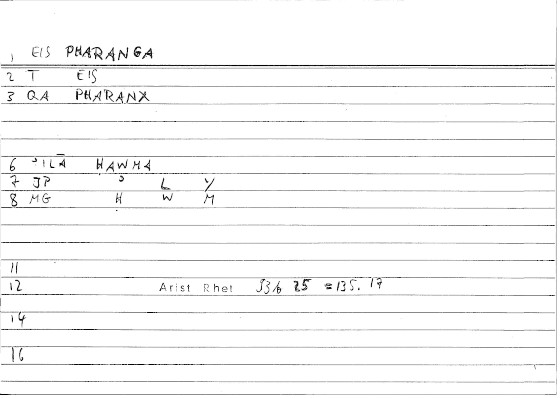 1 EIS PHARANGA
2 T EIS
3 QA PHARANX
6 ʾILĀ HAWMA
7 JP ʾ L Y
8 MG H W M
11
12 Arist Rhet 53b 25 = 135.17
14
16